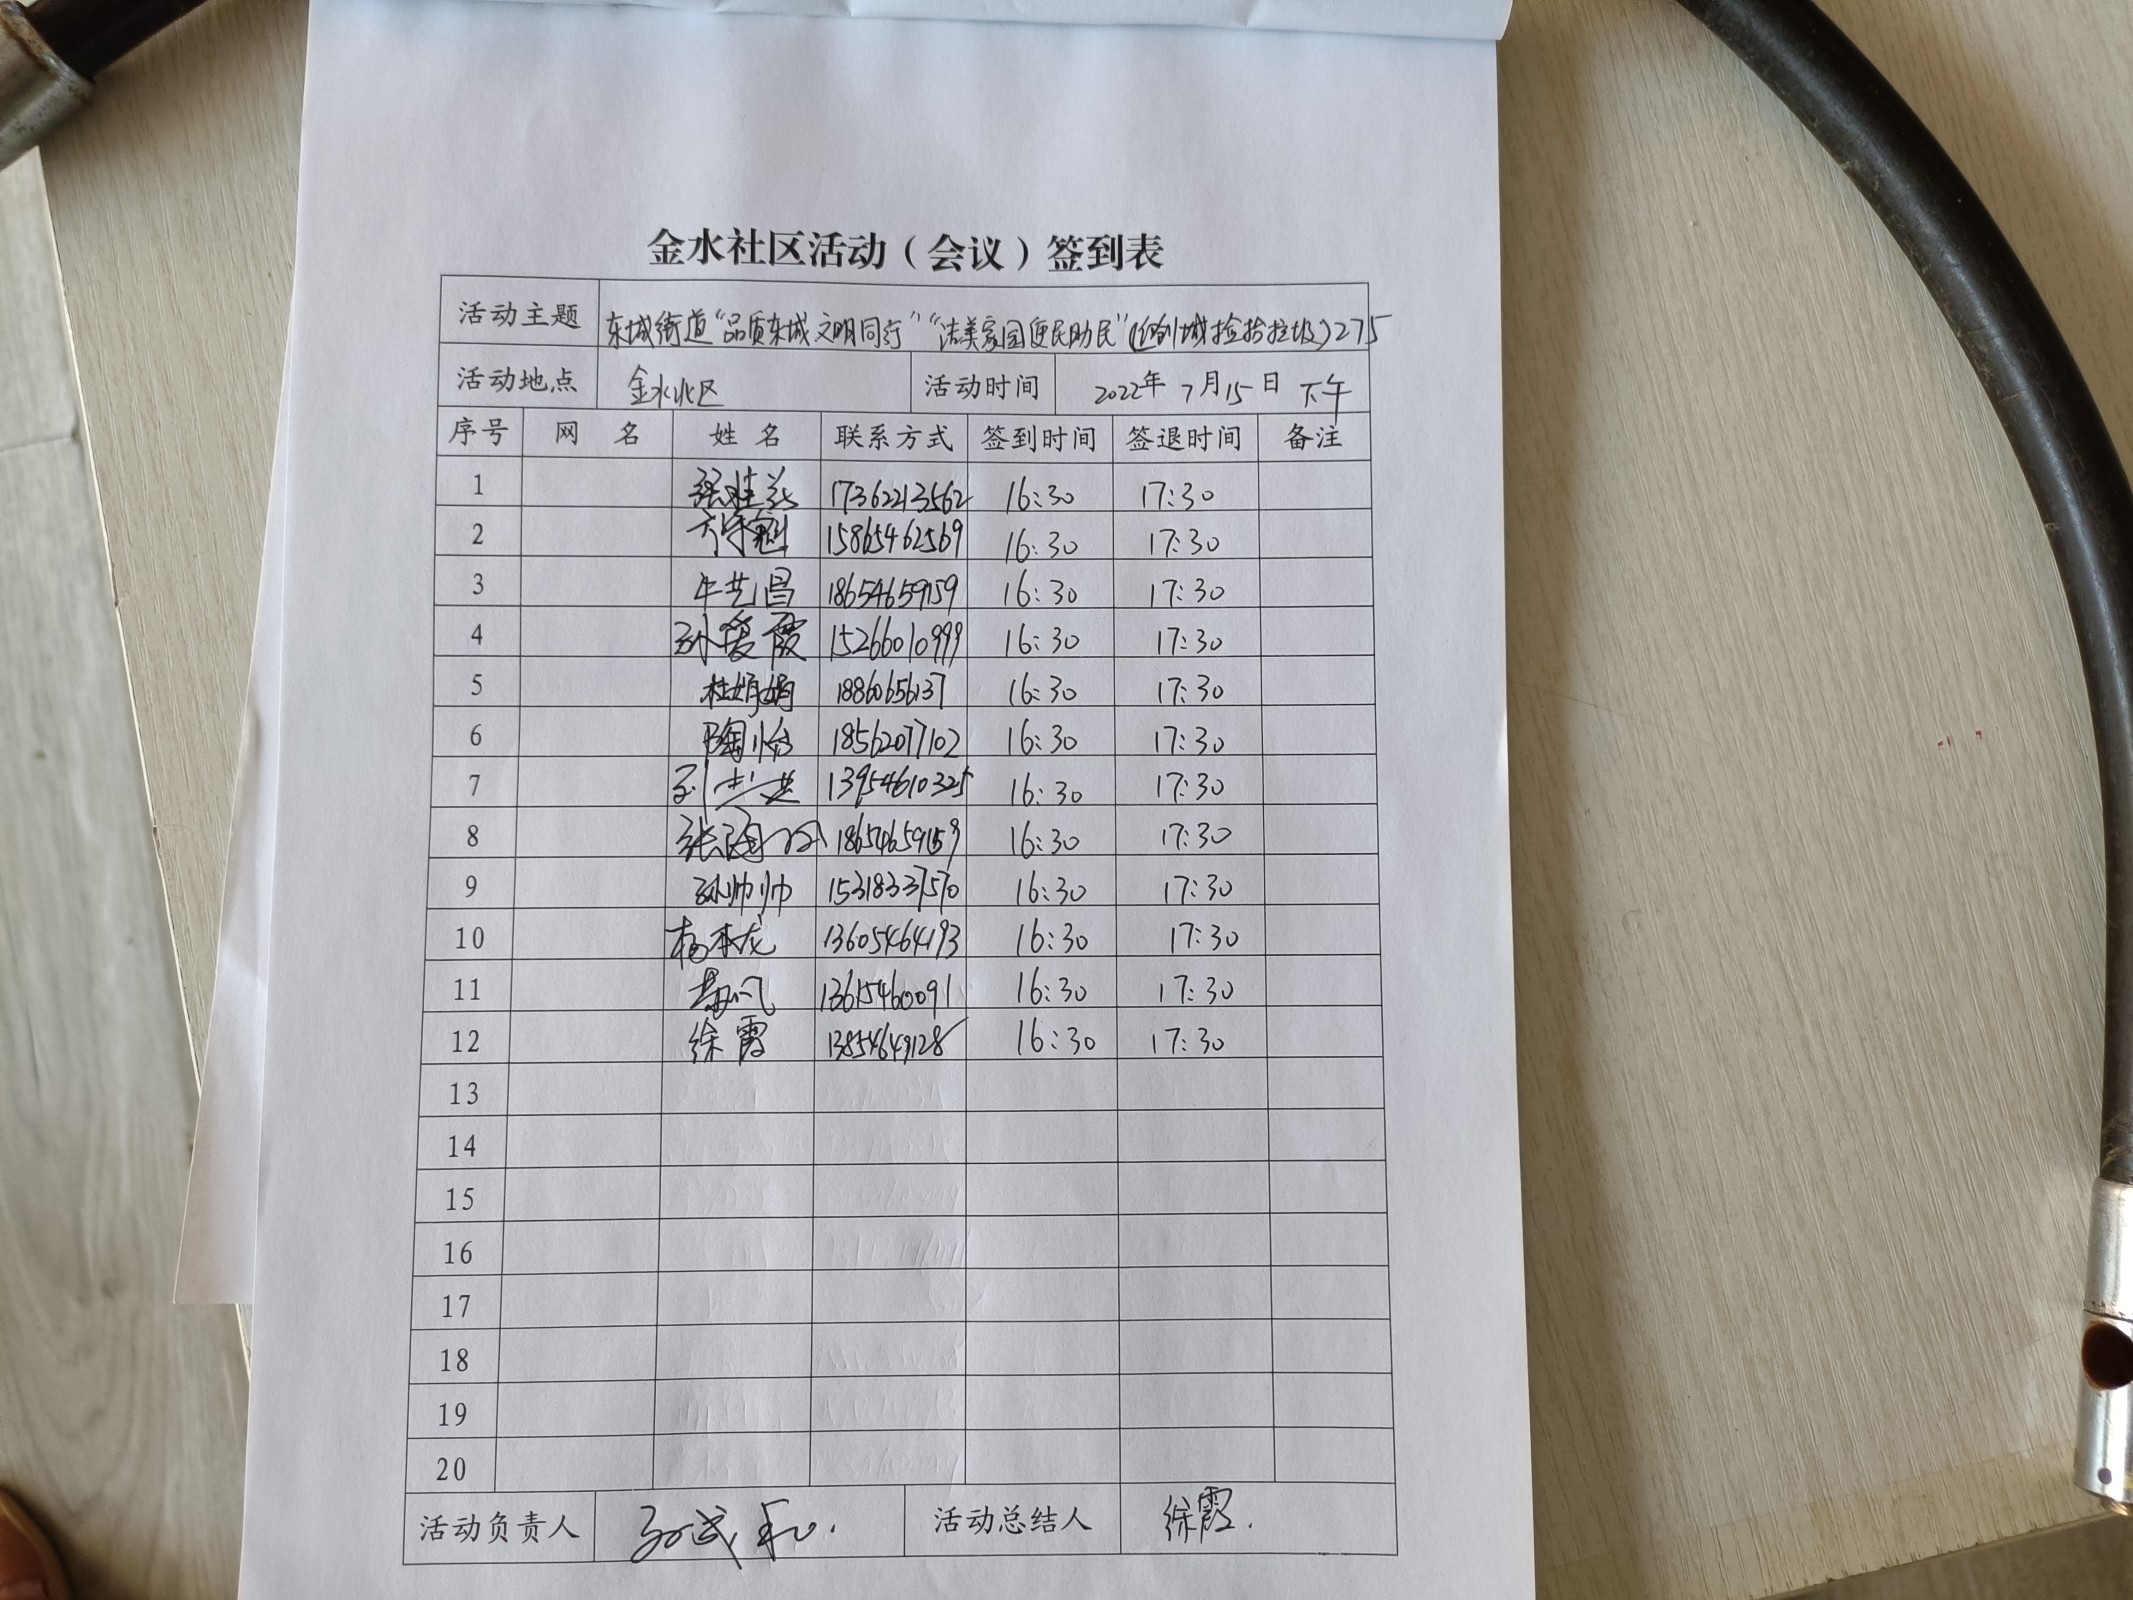 金水社区活动（会议）签到表
活动主题 东城街道“品质东城 文明同行”“洁美家园 便民助民”(创城捡拾垃圾)275
活动地点 金水北区 活动时间 2022年 7月15日 下午
序号 网 名 姓 名 联系方式 签到时间 签退时间 备注
1 张桂兰 17362213562 16:30 17:30
2 15865462569 16:30 17:30
3 牛艺昌 18654659159 16:30 17:30
4 孙爱霞 15266010999 16:30 17:30
5 杜娟娟 18860656137 16:30 17:30
6 陶怡 18562077102 16:30 17:30
7 13954610325 16:30 17:30
8 16:30 17:30
9 孙帅帅 15318337570 16:30 17:30
10 杨本龙 13605464193 16:30 17:30
11 13615460091 16:30 17:30
12 徐霞 13854649128 16:30 17:30
13
14
15
16
17
18
19
20
活动负责人 活动总结人 徐霞.